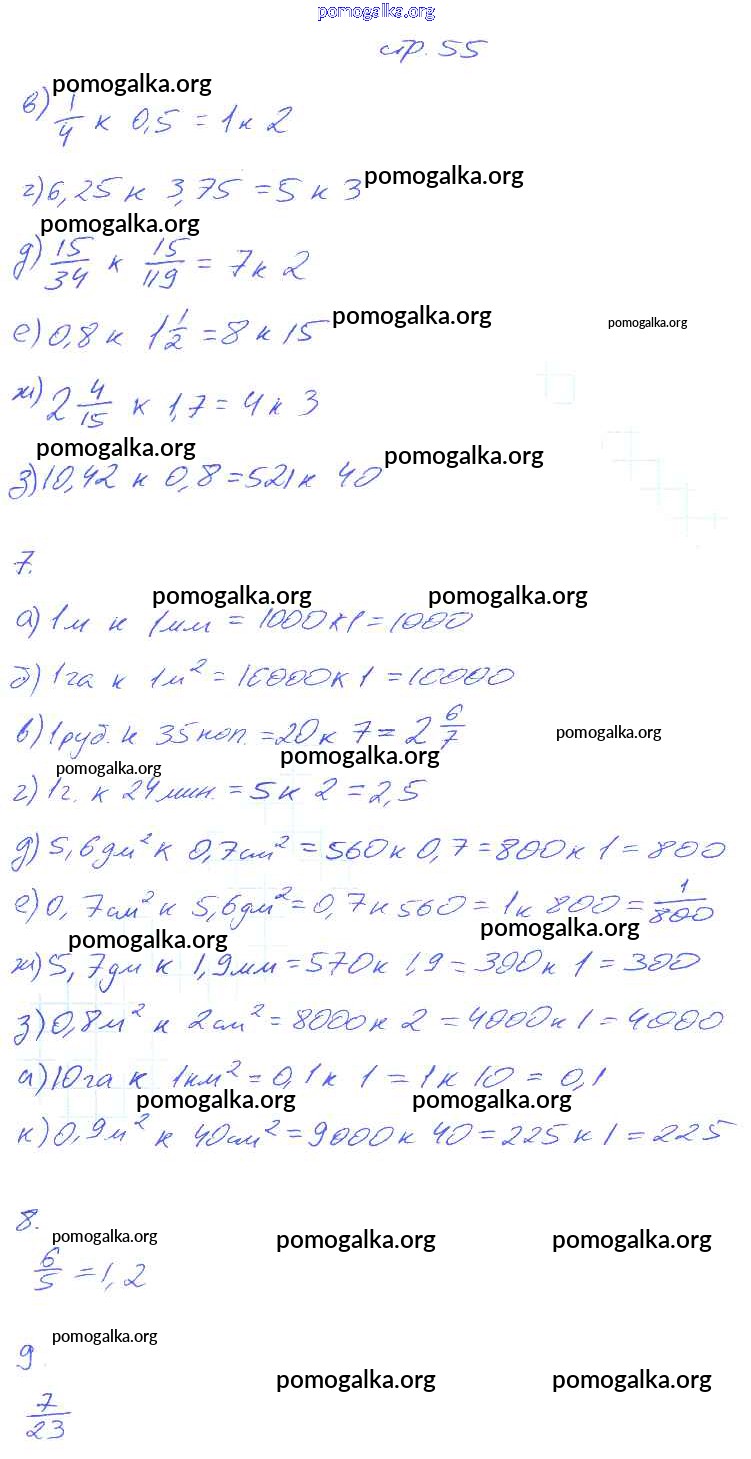 pomogalka.org
стр. 55
pomogalka.org
в) 1/4 к 0,5 = 1 к 2
г) 6,25 к 3,75 = 5 к 3 pomogalka.org
pomogalka.org
д) 15/34 к 15/119 = 7 к 2
е) 0,8 к 1 1/2 = 8 к 15 pomogalka.org pomogalka.org
ж) 2 4/15 к 1,7 = 4 к 3
pomogalka.org pomogalka.org
з) 10,42 к 0,8 = 521 к 40
7.
pomogalka.org pomogalka.org
а) 1м к 1мм = 1000 к 1 = 1000
б) 1га к 1м² = 10000 к 1 = 10000
в) 1руб. к 35коп. = 20 к 7 = 2 6/7 pomogalka.org
pomogalka.org pomogalka.org
г) 1г. к 24мин. = 5 к 2 = 2,5
д) 5,6дм² к 0,7см² = 560 к 0,7 = 800 к 1 = 800
е) 0,7см² к 5,6дм² = 0,7 к 560 = 1 к 800 = 1/800
pomogalka.org pomogalka.org
ж) 5,7дм к 1,9мм = 570 к 1,9 = 300 к 1 = 300
з) 0,8м² к 2см² = 8000 к 2 = 4000 к 1 = 4000
и) 10га к 1км² = 0,1 к 1 = 1 к 10 = 0,1
pomogalka.org pomogalka.org
к) 0,9м² к 40см² = 9000 к 40 = 225 к 1 = 225
8.
pomogalka.org pomogalka.org pomogalka.org
6/5 = 1,2
pomogalka.org
9.
pomogalka.org pomogalka.org
7/23